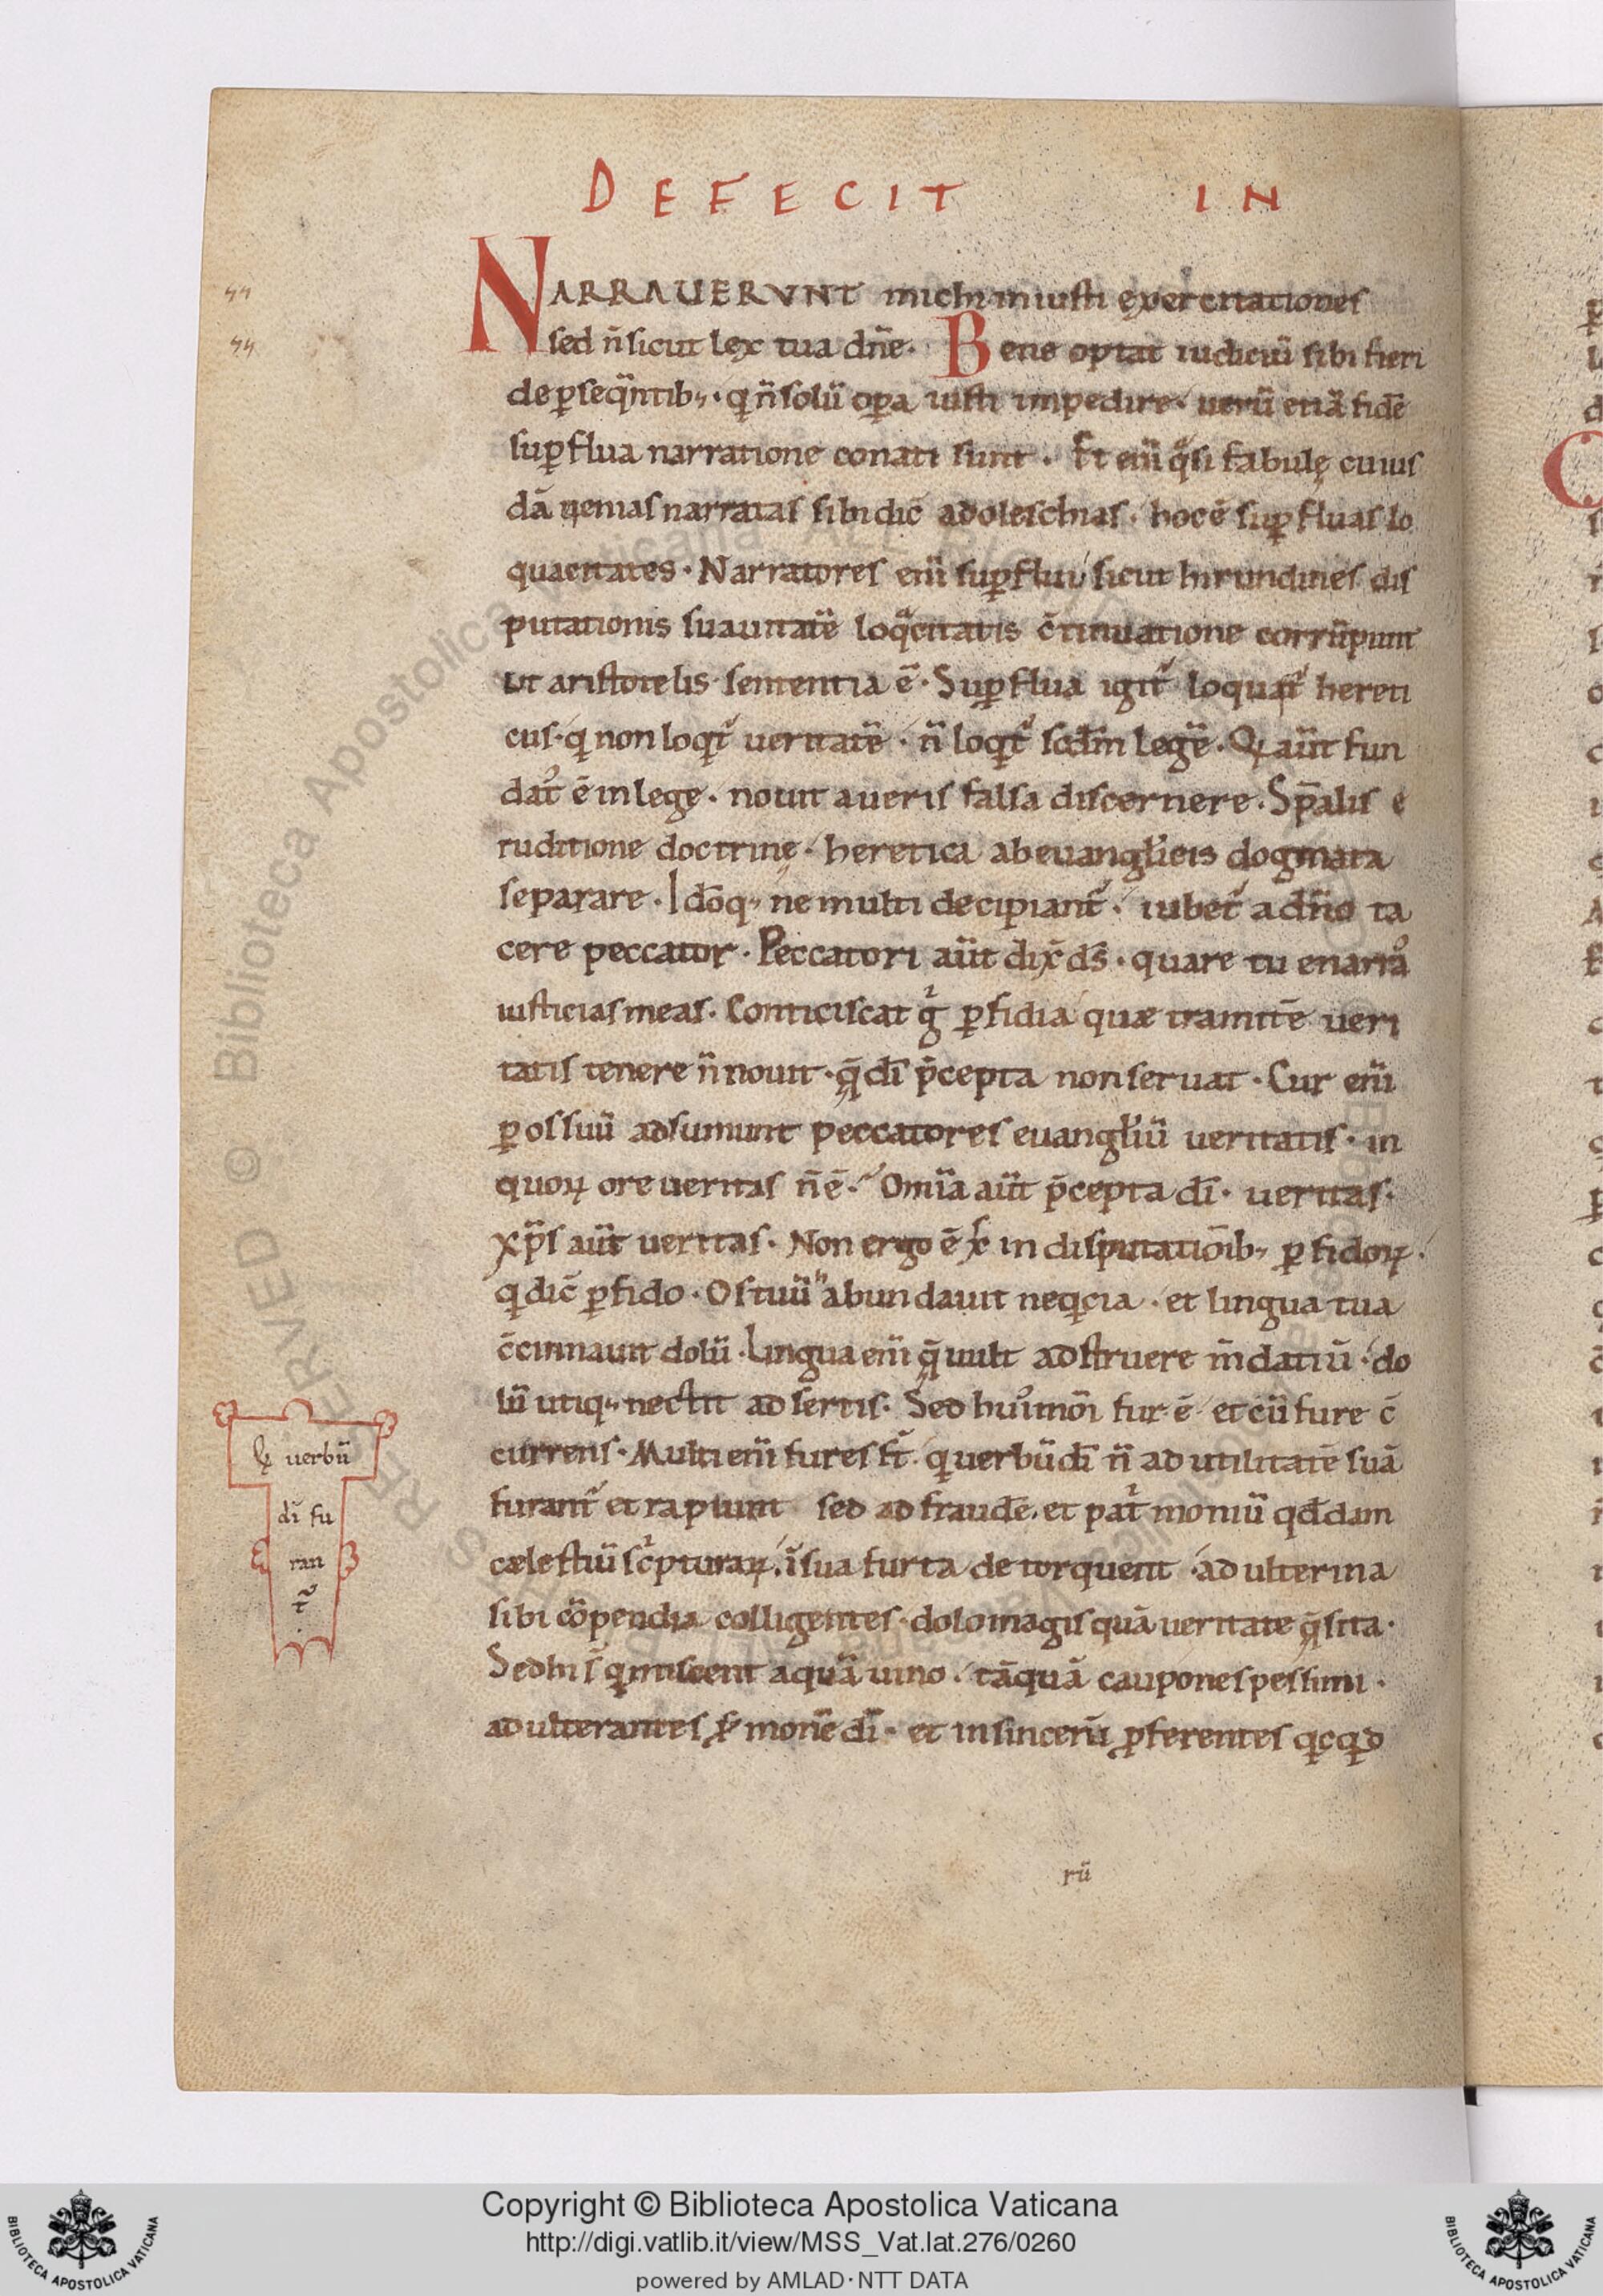 DEFECIT IN
NARRAUERVNT michi iniusti exercitationes
sed n̄ sicut lex tua dn̄e. Bene optat iudiciū sibi fieri
de ꝑseq̄ntib;. q n̄ solū oꝑa iusti impedire. uerū etiā fidē
suꝑflua narratione conati sunt. Et eni̅ q̄si fabulę cuius
dā nenias narratas sibi dic̄ adoleschias. hoc ē suꝑfluas lo
quacitates. Narratores eni̅ suꝑflui sicut hirundines dis
putationis suauitatē loq̄citatis c̄tinuatione corrūpunt
ut aristotelis sententia ē. Suꝑflua igit̄ loquat̄ hereti
cus. q non loqt̄ ueritatē. n̄ loqt̄ scdm̄ legē. Q aūt fun
dat᷒ ē in lege. nouit a ueris falsa discernere. Sp̄alis e
ruditione doctrinę. heretica ab euangl̄icis dogmata
separare. Idōq; ne multi decipiant̄. iubet̄ a dn̄o ta
cere peccator. Peccatori aūt dix̄ ds̄. quare tu enarra᷒
iusticias meas. Conticiscat g̊ ꝑfidia quæ tramitē ueri
tatis tenere n̄ nouit. q̄ dī p̄cepta non seruat. Cur eni̅
ꝑ os suū adsumunt peccatores euangl̄iū ueritatis. in
quoꝝ ore ueritas n̄ ē. Omīa aūt p̄cepta dī. ueritas.
xp̄s aūt ueritas. Non ergo ē x̄c in disputatiōib; ꝑfidoꝝ.
q dic̄ ꝑfido. Os tuū abundauit neqcia. et lingua tua
c̄cinnauit dolū. Lingua eni̅ q̄ uult adstruere m̄datiū. do
lū utiq; nectit adsertis. Sed hui᷒mōi fur ē et cū fure c̄
currens. Multi eni̅ fures st̄. q uerbū dī n̄ ad utilitatē suā
furant̄ et rapiunt sed ad fraudē. et pat̄moniū qd̄dam
cælestiū sc̄pturaꝝ. ī sua furta detorquent. adulterina
sibi cōpendia colligentes. dolo magis quā ueritate q̄sita.
Sed hi s̄ q miscent aquā uino. tāquā caupones pessimi.
adulterantes s̄monē dī. et insincerū ꝓferentes qcqd
Q uerbū
dī fu
ran
t̄
rū
Copyright © Biblioteca Apostolica Vaticana
http://digi.vatlib.it/view/MSS_Vat.lat.276/0260
powered by AMLAD·NTT DATA
BIBLIOTECA APOSTOLICA VATICANA
BIBLIOTECA APOSTOLICA VATICANA